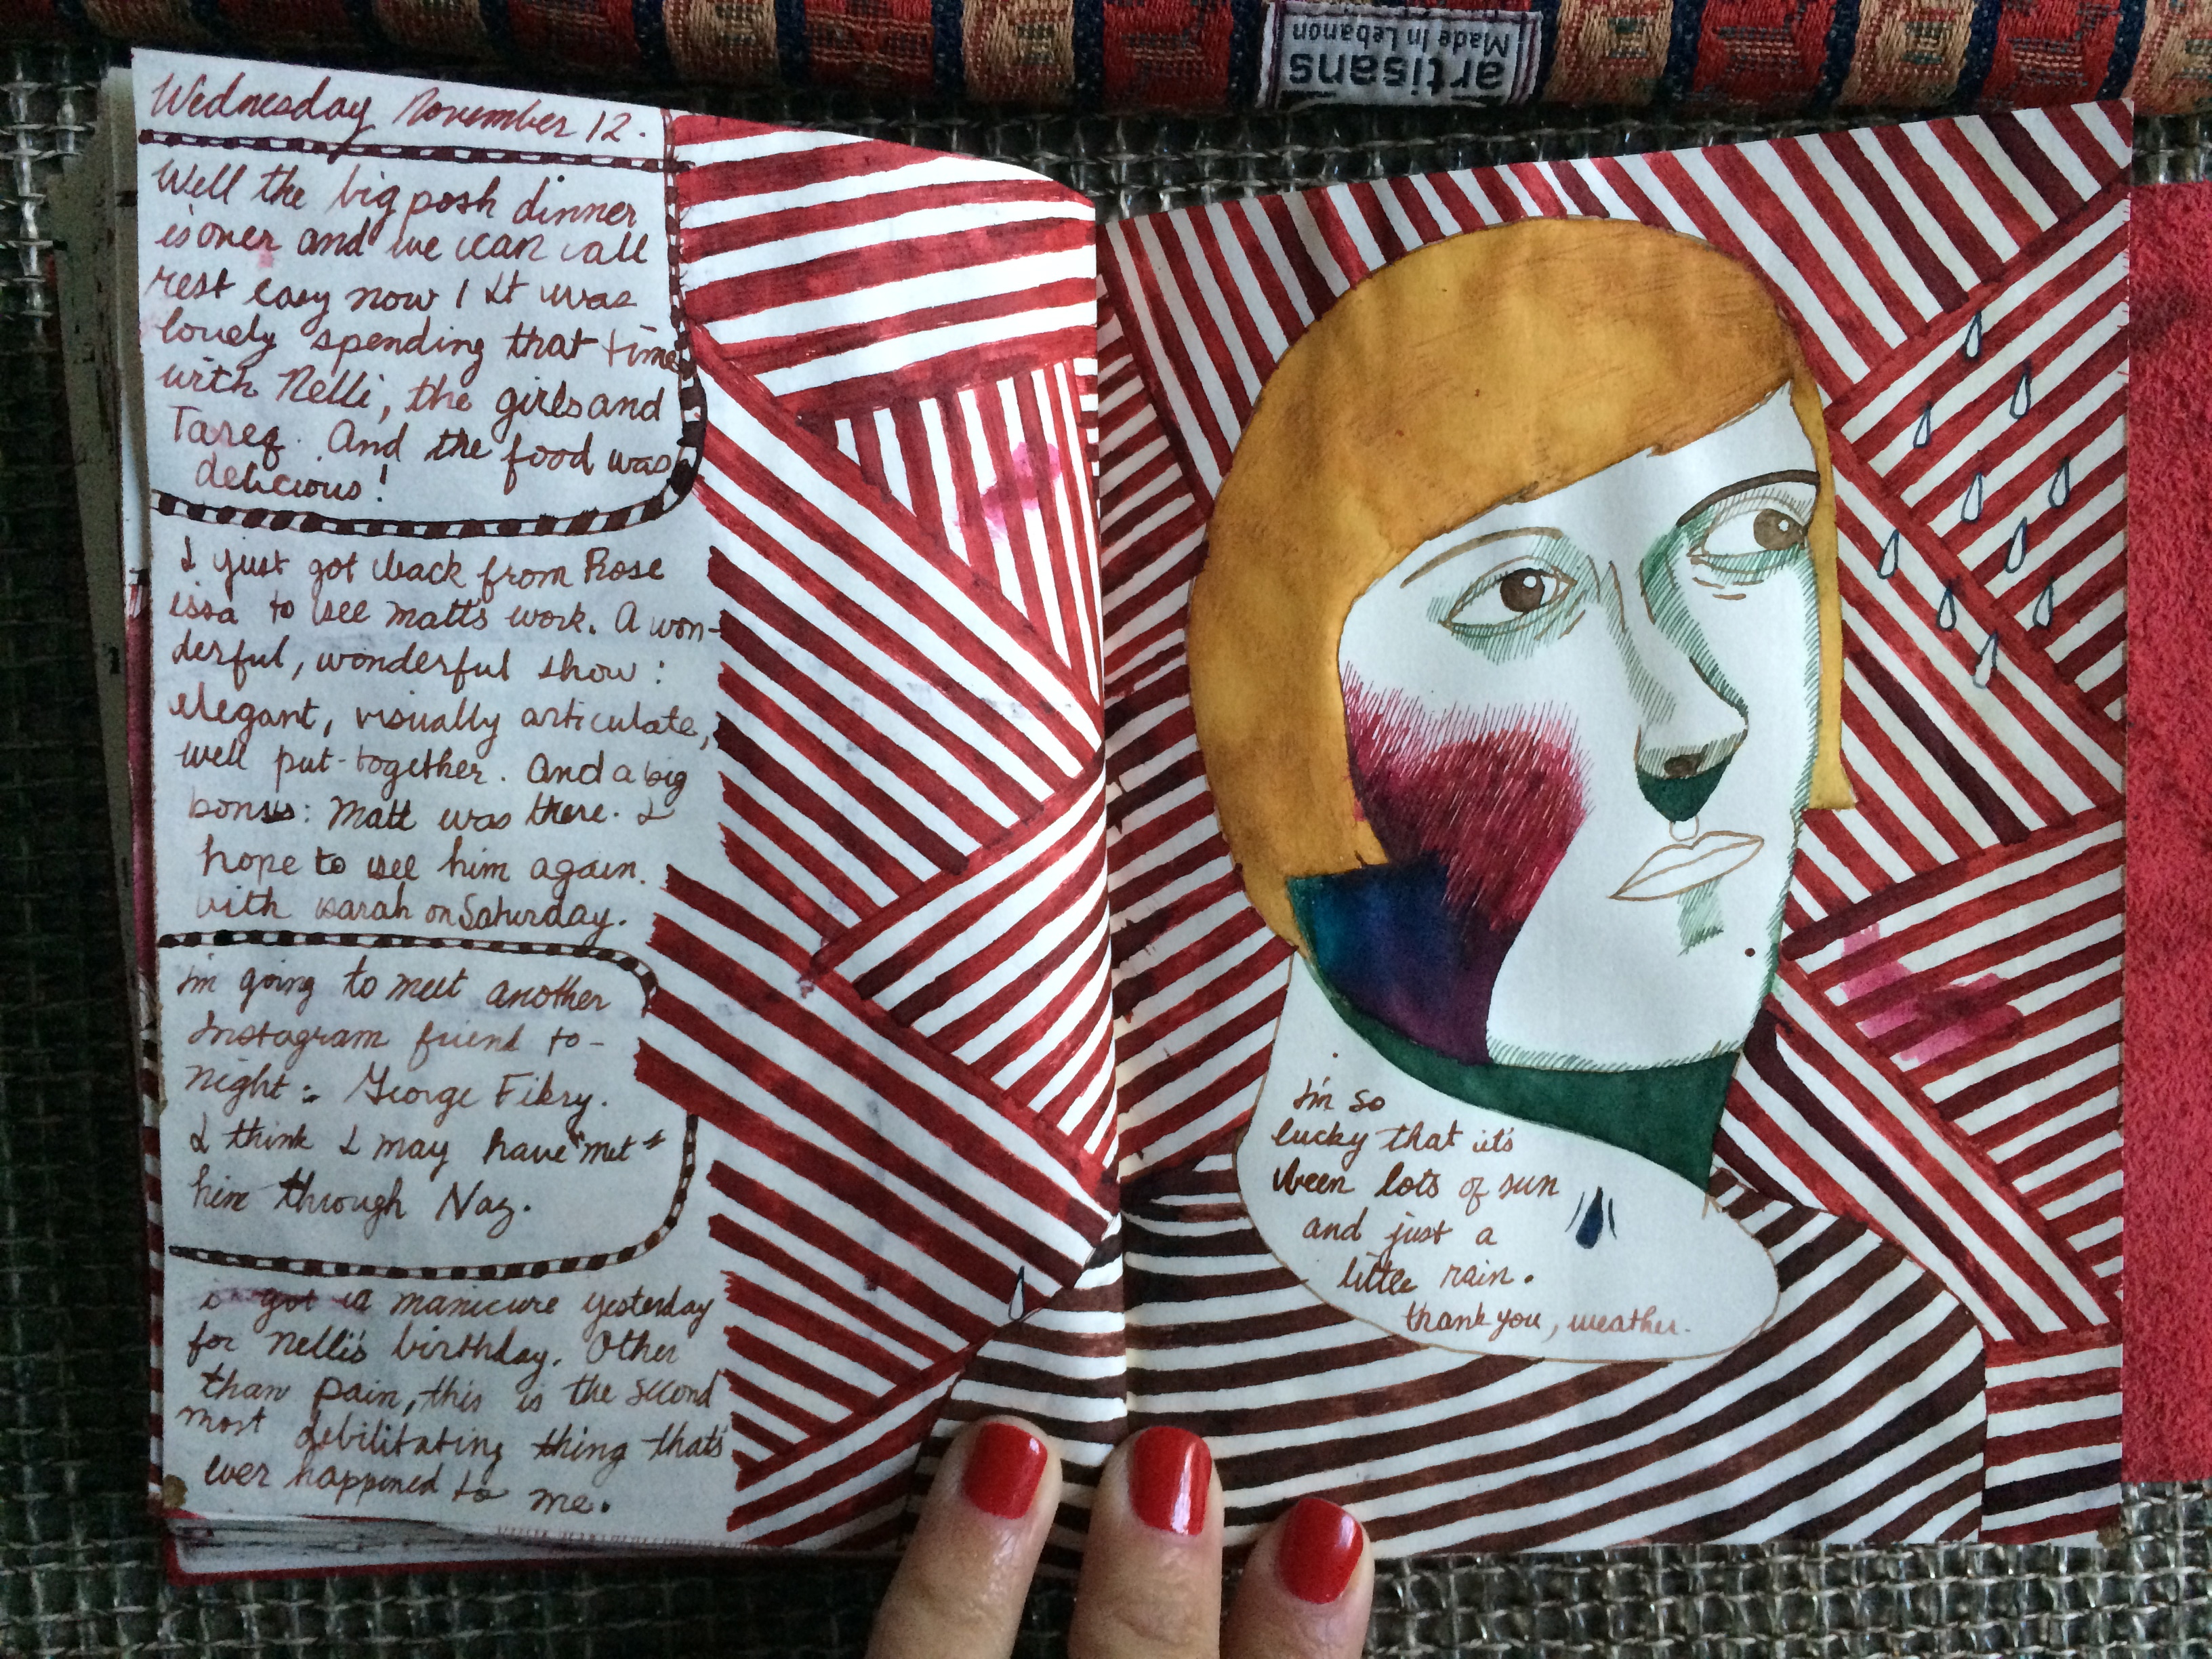 artisans
Made In Lebanon
Wednesday November 12.
Well the big posh dinner
is over and we can all
rest easy now! It was
lovely spending that time
with Nelli, the girls and
Tareq. And the food was
delicious!
I just got back from Rose
issa to see matt's work. A won-
derful, wonderful show:
elegant, visually articulate,
well put-together. And a big
bonus: Matt was there. I
hope to see him again.
with sarah on Saturday.
i'm going to meet another
Instagram friend to-
night: George Fikry.
I think I may have "met"
him through Naz.
i got a manicure yesterday
for nelli's birthday. Other
than pain, this is the second
most debilitating thing that's
ever happened to me.
I'm so
lucky that it's
been lots of sun
and just a
little rain.
thank you, weather.